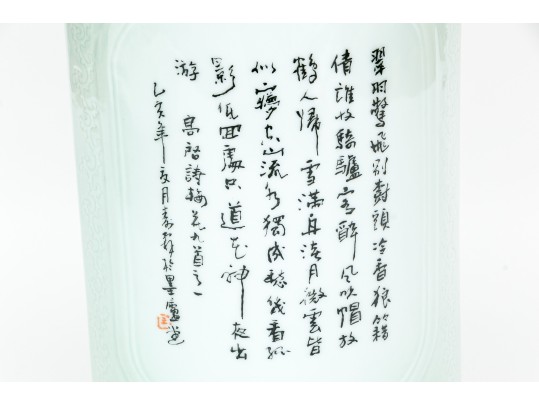 翠羽驚飛别樹頭冷香狼籍
倩誰收騎驢客醉風吹帽放
鶴人歸雪滿舟淡月微雲皆
似夢空山流水獨成愁幾看孤
影低回處只道花神夜出
游 高啓詩梅花九首之一
乙亥年亥月群於墨廬